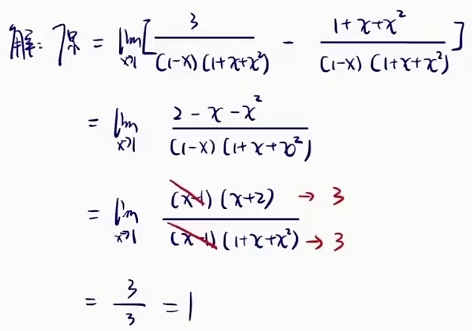 解: 原 = lim x→1 [ 3 / (1-x)(1+x+x²) - 1+x+x² / (1-x)(1+x+x²) ]
= lim x→1 2-x-x² / (1-x)(1+x+x²)
= lim x→1 (x-1)(x+2) → 3 / (x-1)(1+x+x²) → 3
= 3/3 = 1